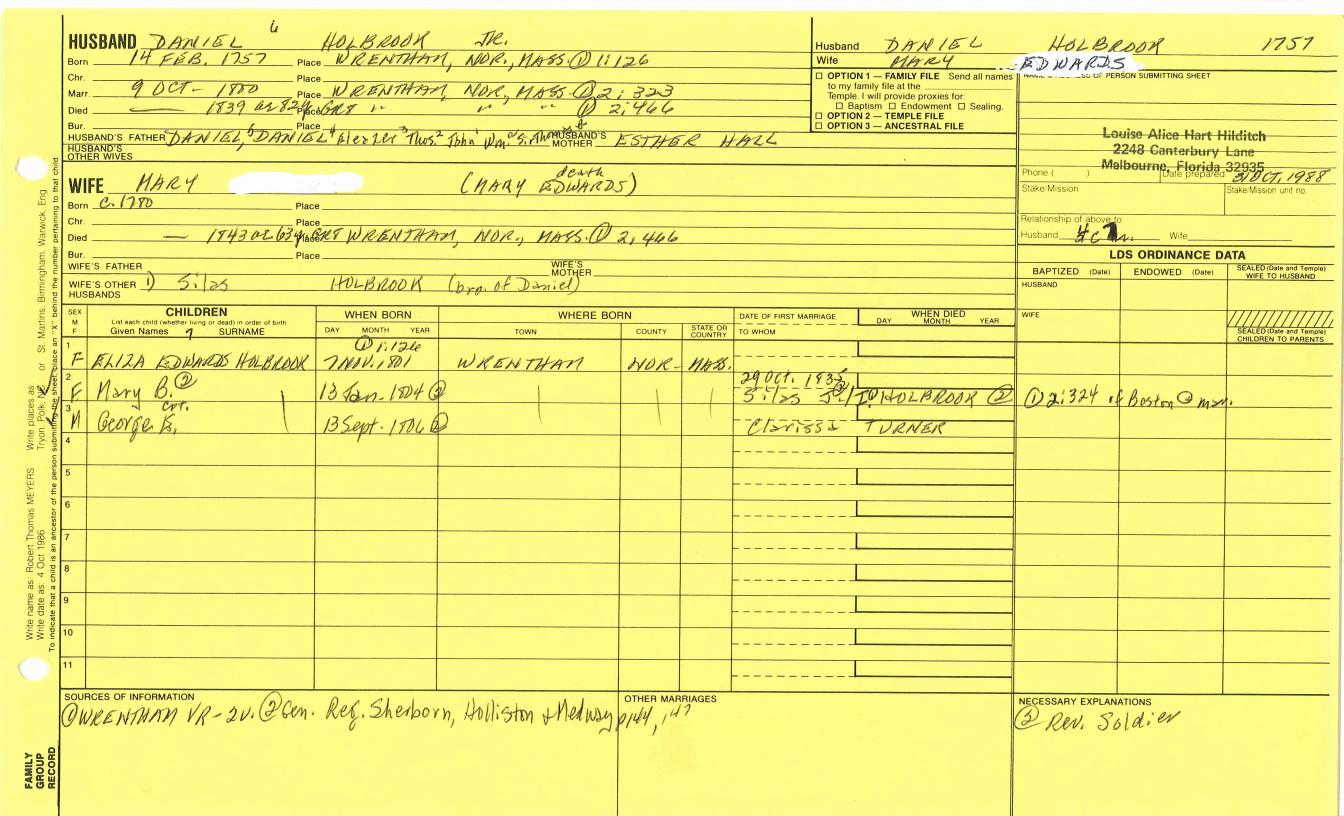 6
HUSBAND DANIEL HOLBROOK JR.
Born 14 FEB. 1757 Place WRENTHAM, NOR., MASS. ① 1:126
Chr. Place
Marr 9 OCT - 1800 Place WRENTHAM, NOR, MASS. ① 2:323
Died — 1839 ae 82y Place GR8 " " " ① 2:466
Bur. Place
HUSBAND'S FATHER DANIEL,⁵ DANIEL⁴ Thos.² John¹ Wm. HUSBAND'S MOTHER ESTHER HALL
HUSBAND'S OTHER WIVES
Husband DANIEL HOLBROOK 1757
Wife MARY EDWARDS
☐ OPTION 1 — FAMILY FILE Send all names
to my family file at the
Temple. I will provide proxies for
☐ Baptism ☐ Endowment ☐ Sealing.
☐ OPTION 2 — TEMPLE FILE
☐ OPTION 3 — ANCESTRAL FILE
OF PERSON SUBMITTING SHEET
Louise Alice Hart Hilditch
2248 Canterbury Lane
Melbourne, Florida 32935
Phone ( ) Date prepared OCT, 1988
Stake/Mission Stake/Mission unit no.
Relationship of above to
Husband Wife
death
WIFE MARY (MARY EDWARDS)
Born c. 1780 Place
Chr. Place
Died — 1843 ae 63y Place GR8 WRENTHAM, NOR., MASS. ① 2,466
Bur. Place
WIFE'S FATHER WIFE'S MOTHER
WIFE'S OTHER HUSBANDS 1) Silas HOLBROOK (bro. of Daniel)
LDS ORDINANCE DATA
BAPTIZED (Date) ENDOWED (Date) SEALED (Date and Temple) WIFE TO HUSBAND
HUSBAND
WIFE
SEALED (Date and Temple) CHILDREN TO PARENTS
SEX M F CHILDREN WHEN BORN WHERE BORN DATE OF FIRST MARRIAGE WHEN DIED
List each child (whether living or dead) in order of birth
Given Names 7 SURNAME DAY MONTH YEAR TOWN COUNTY STATE OR COUNTRY TO WHOM DAY MONTH YEAR
① 1:126
1 F ELIZA EDWARDS HOLBROOK 7 NOV. 1801 WRENTHAM NOR- MASS.
29 Oct. 1835
2 F Mary B. ② 13 Jan - 1804 ② Silas HOLBROOK ② ① 2:324 of Boston @ marr.
Cpt.
3 M George 13 Sept - 1806 ② Clarissa TURNER
4
5
6
7
8
9
10
11
SOURCES OF INFORMATION OTHER MARRIAGES NECESSARY EXPLANATIONS
① WRENTHAM VR - 2v. ② Gen. Reg. Sherborn, Holliston & Medway p144, 147
③ Rev. Soldier
Write name as: Robert Thomas MEYERS Write places as
Write date as: 4 Oct 1986 Tryon, Polk, NC or St. Martins, Birmingham, Warwick, Eng
To indicate that a child is an ancestor of the person submitting the sheet, place an "X" behind the number pertaining to that child.
FAMILY GROUP RECORD